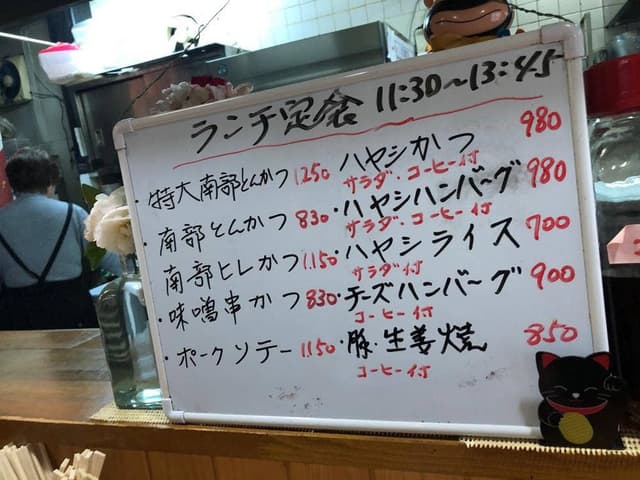 ランチ定食 11:30~13:45
・特大南部とんかつ 1250
・南部とんかつ 830
南部ヒレかつ 1.150
・味噌串かつ 830
・ポークソテー 1150
ハヤシかつ 980
サラダ・コーヒー付
・ハヤシハンバーグ 980
サラダ・コーヒー付
・ハヤシライス 700
サラダ付
・チーズハンバーグ 900
コーヒー付
・豚・生姜焼 850
コーヒー付